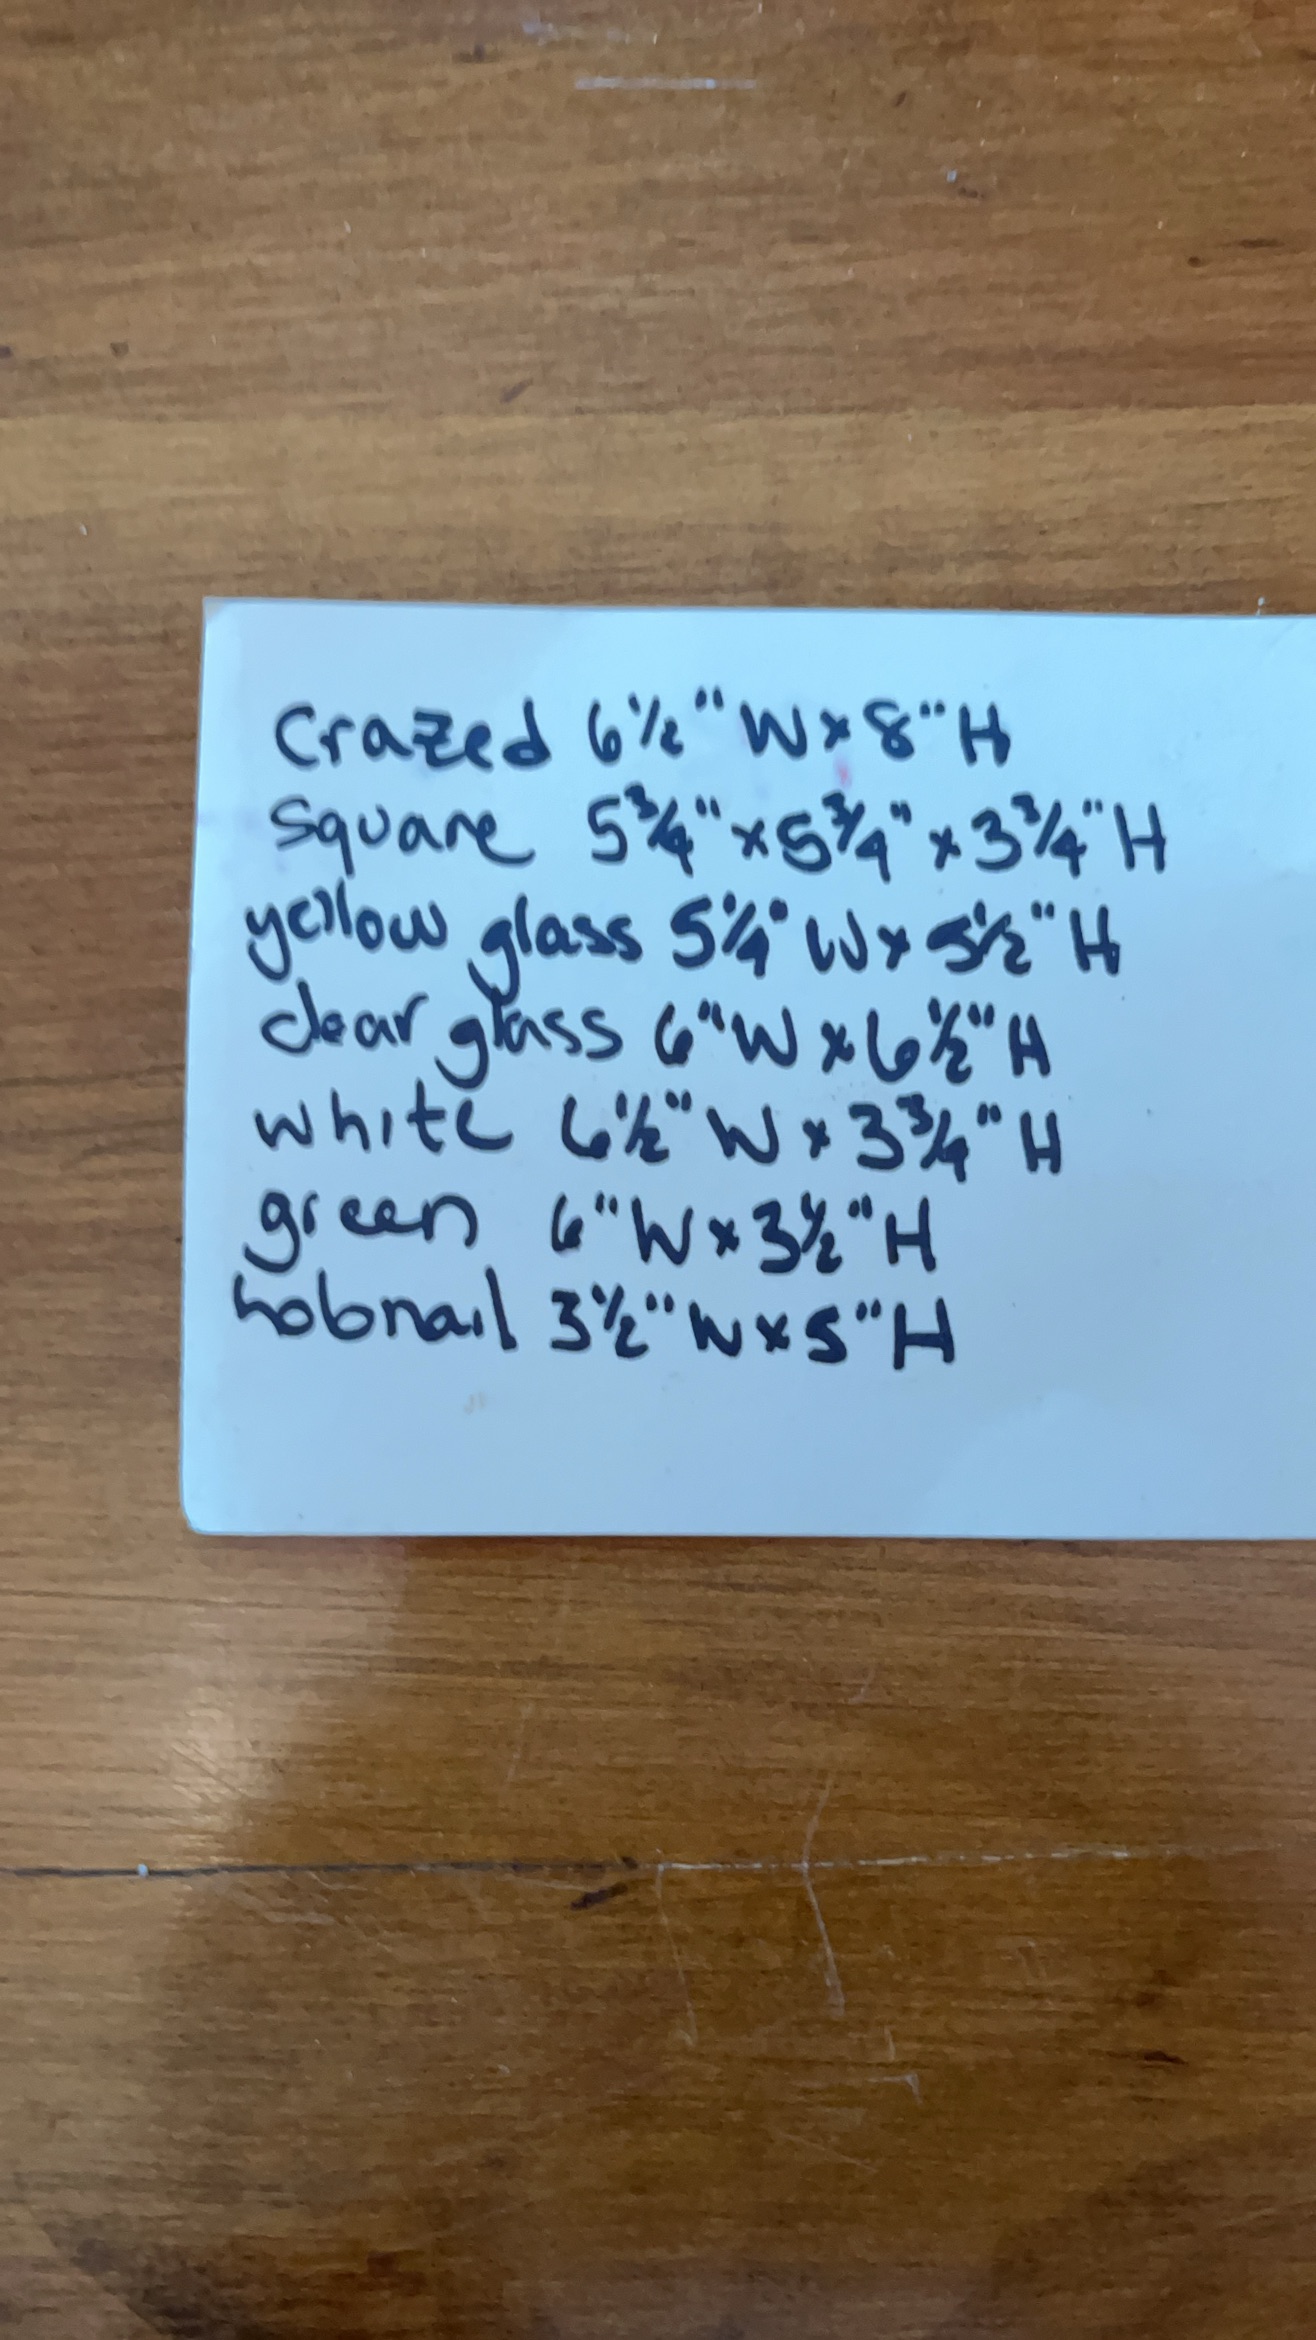 Crazed 6½" W x 8" H
Square 5¾" x 5¾" x 3¾" H
yellow glass 5¼" W x 5½" H
clear glass 6" W x 6½" H
white 6½" W x 3¾" H
green 6" W x 3½" H
hobnail 3½" W x 5" H